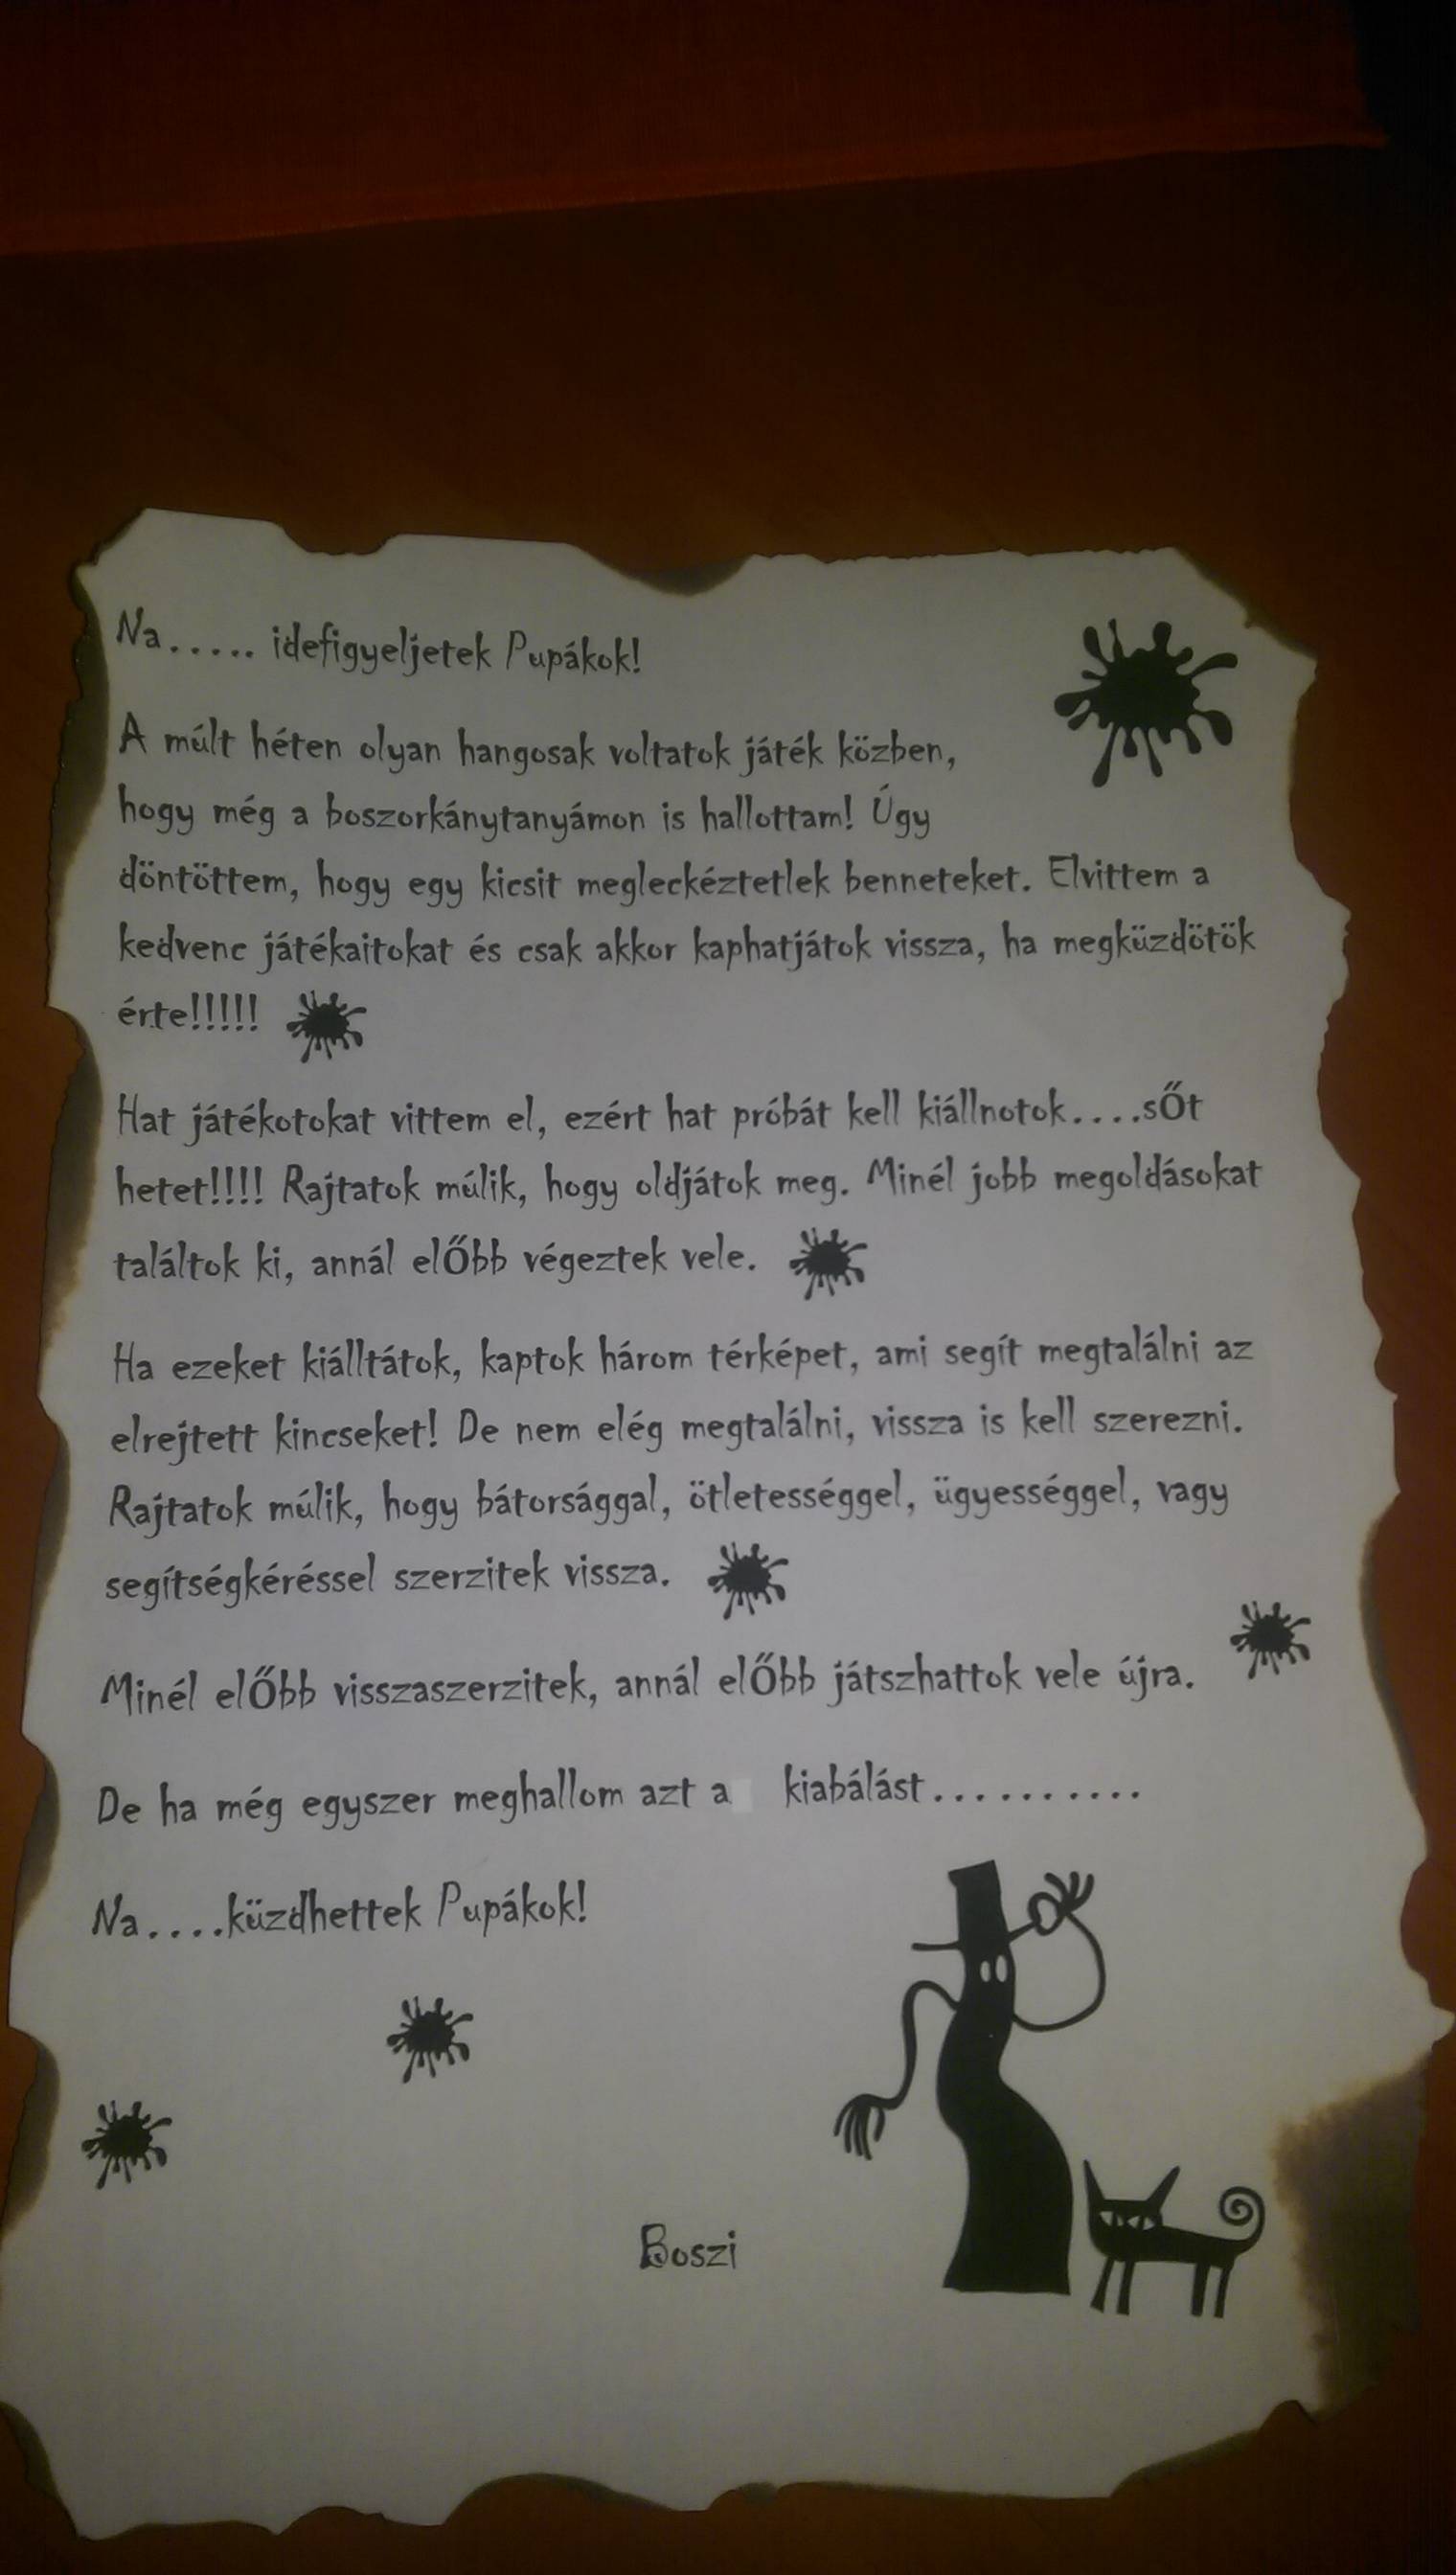 Na..... idefigyeljetek Pupákok!
A múlt héten olyan hangosak voltatok játék közben,
hogy még a boszorkánytanyámon is hallottam! Úgy
döntöttem, hogy egy kicsit megleckéztetlek benneteket. Elvittem a
kedvenc játékaitokat és csak akkor kaphatjátok vissza, ha megküzdötök
érte!!!!!
Hat játékotokat vittem el, ezért hat próbát kell kiállnotok....sŐt
hetet!!!! Rajtatok múlik, hogy oldjátok meg. Minél jobb megoldásokat
találtok ki, annál elŐbb végeztek vele.
Ha ezeket kiálltátok, kaptok három térképet, ami segít megtalálni az
elrejtett kincseket! De nem elég megtalálni, vissza is kell szerezni.
Rajtatok múlik, hogy bátorsággal, ötletességgel, ügyességgel, vagy
segítségkéréssel szerzitek vissza.
Minél elŐbb visszaszerzitek, annál elŐbb játszhattok vele újra.
De ha még egyszer meghallom azt a kiabálást...........
Na....küzdhettek Pupákok!
Boszi